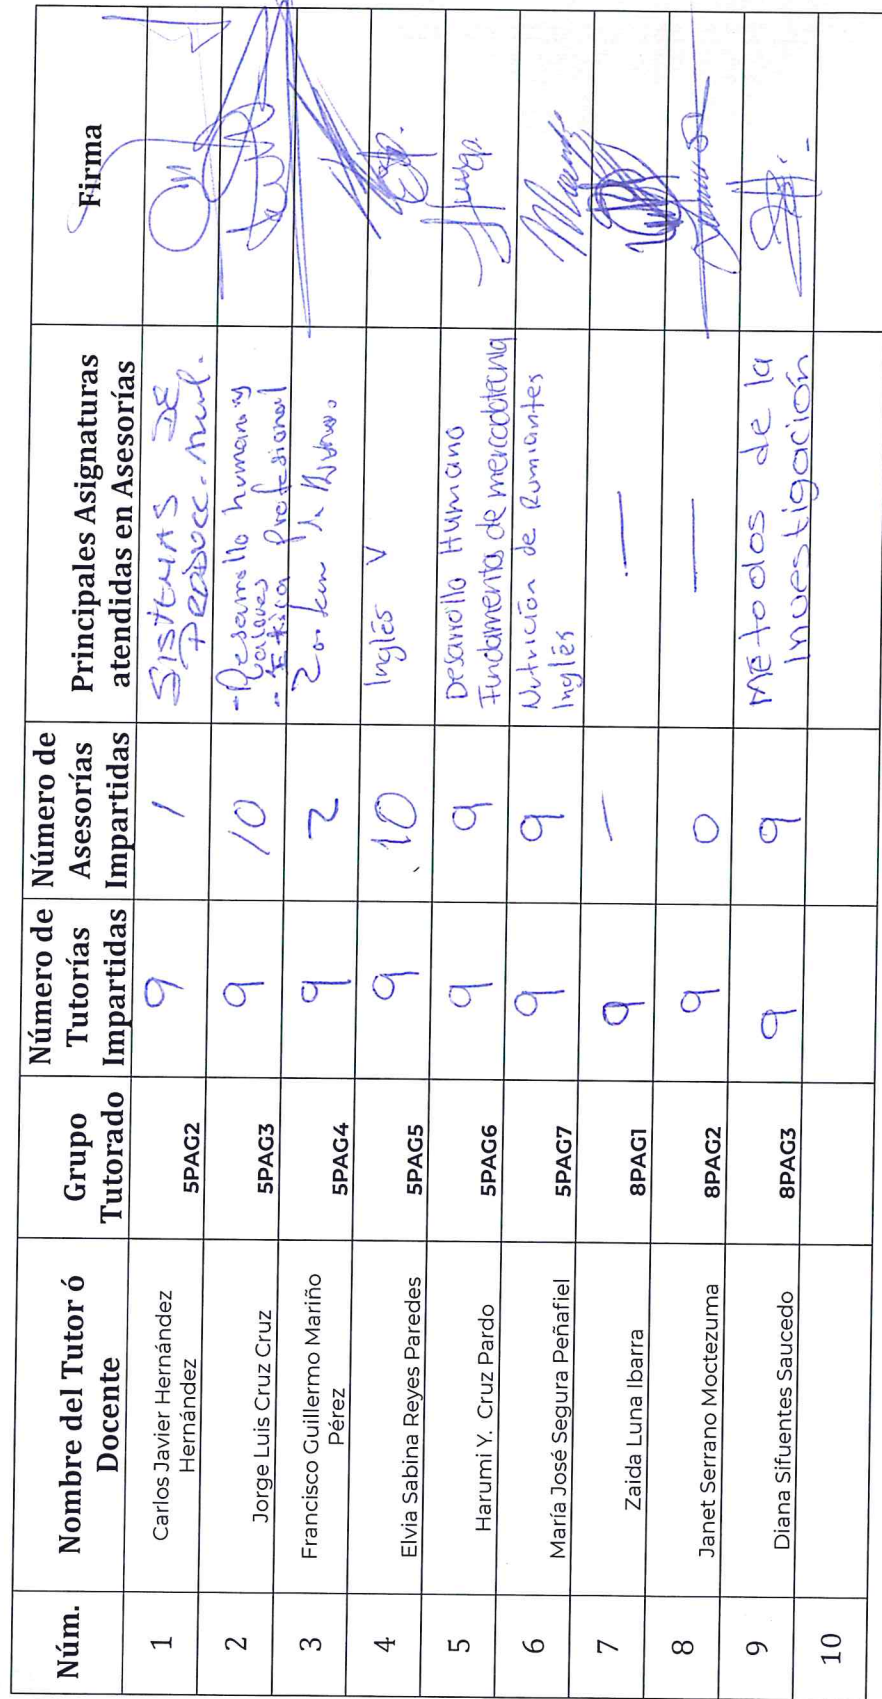 Núm.
Nombre del Tutor ó
Docente
Grupo
Tutorado
Número de
Tutorías
Impartidas
Número de
Asesorías
Impartidas
Principales Asignaturas
atendidas en Asesorías
Firma
1
Carlos Javier Hernández
Hernández
5PAG2
9
1
SISTEMAS DE
PRODUCC. Anml.
2
Jorge Luis Cruz Cruz
5PAG3
9
10
- Desarrollo humano y
valores
- Ética Profesional
3
Francisco Guillermo Mariño
Pérez
5PAG4
9
2
4
Elvia Sabina Reyes Paredes
5PAG5
9
10
Inglés V
5
Harumi Y. Cruz Pardo
5PAG6
9
9
Desarrollo Humano
Fundamentos de mercadotecnia
6
María José Segura Peñafiel
5PAG7
9
9
Nutrición de Rumiantes
Inglés
7
Zaida Luna Ibarra
8PAG1
9
—
—
8
Janet Serrano Moctezuma
8PAG2
9
0
—
9
Diana Sifuentes Saucedo
8PAG3
9
9
Métodos de la
Investigación
10